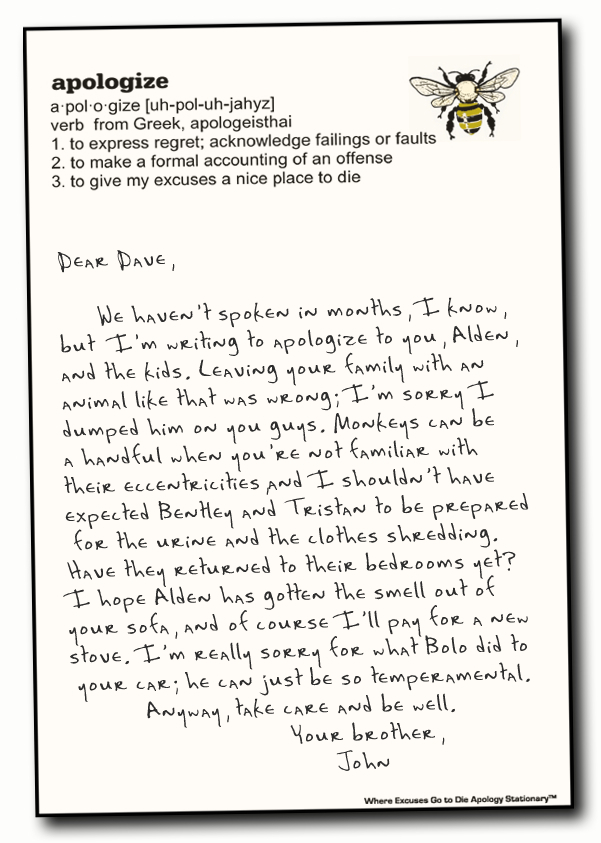 apologize
a·pol·o·gize [uh-pol-uh-jahyz]
verb  from Greek, apologeisthai
1. to express regret; acknowledge failings or faults
2. to make a formal accounting of an offense
3. to give my excuses a nice place to die
Dear Dave,
We haven't spoken in months, I know,
but I'm writing to apologize to you, Alden,
and the kids. Leaving your family with an
animal like that was wrong; I'm sorry I
dumped him on you guys. Monkeys can be
a handful when you're not familiar with
their eccentricities and I shouldn't have
expected Bentley and Tristan to be prepared
for the urine and the clothes shredding.
Have they returned to their bedrooms yet?
I hope Alden has gotten the smell out of
your sofa, and of course I'll pay for a new
stove. I'm really sorry for what Bolo did to
your car; he can just be so temperamental.
Anyway, take care and be well.
Your brother,
John
Where Excuses Go to Die Apology Stationary™